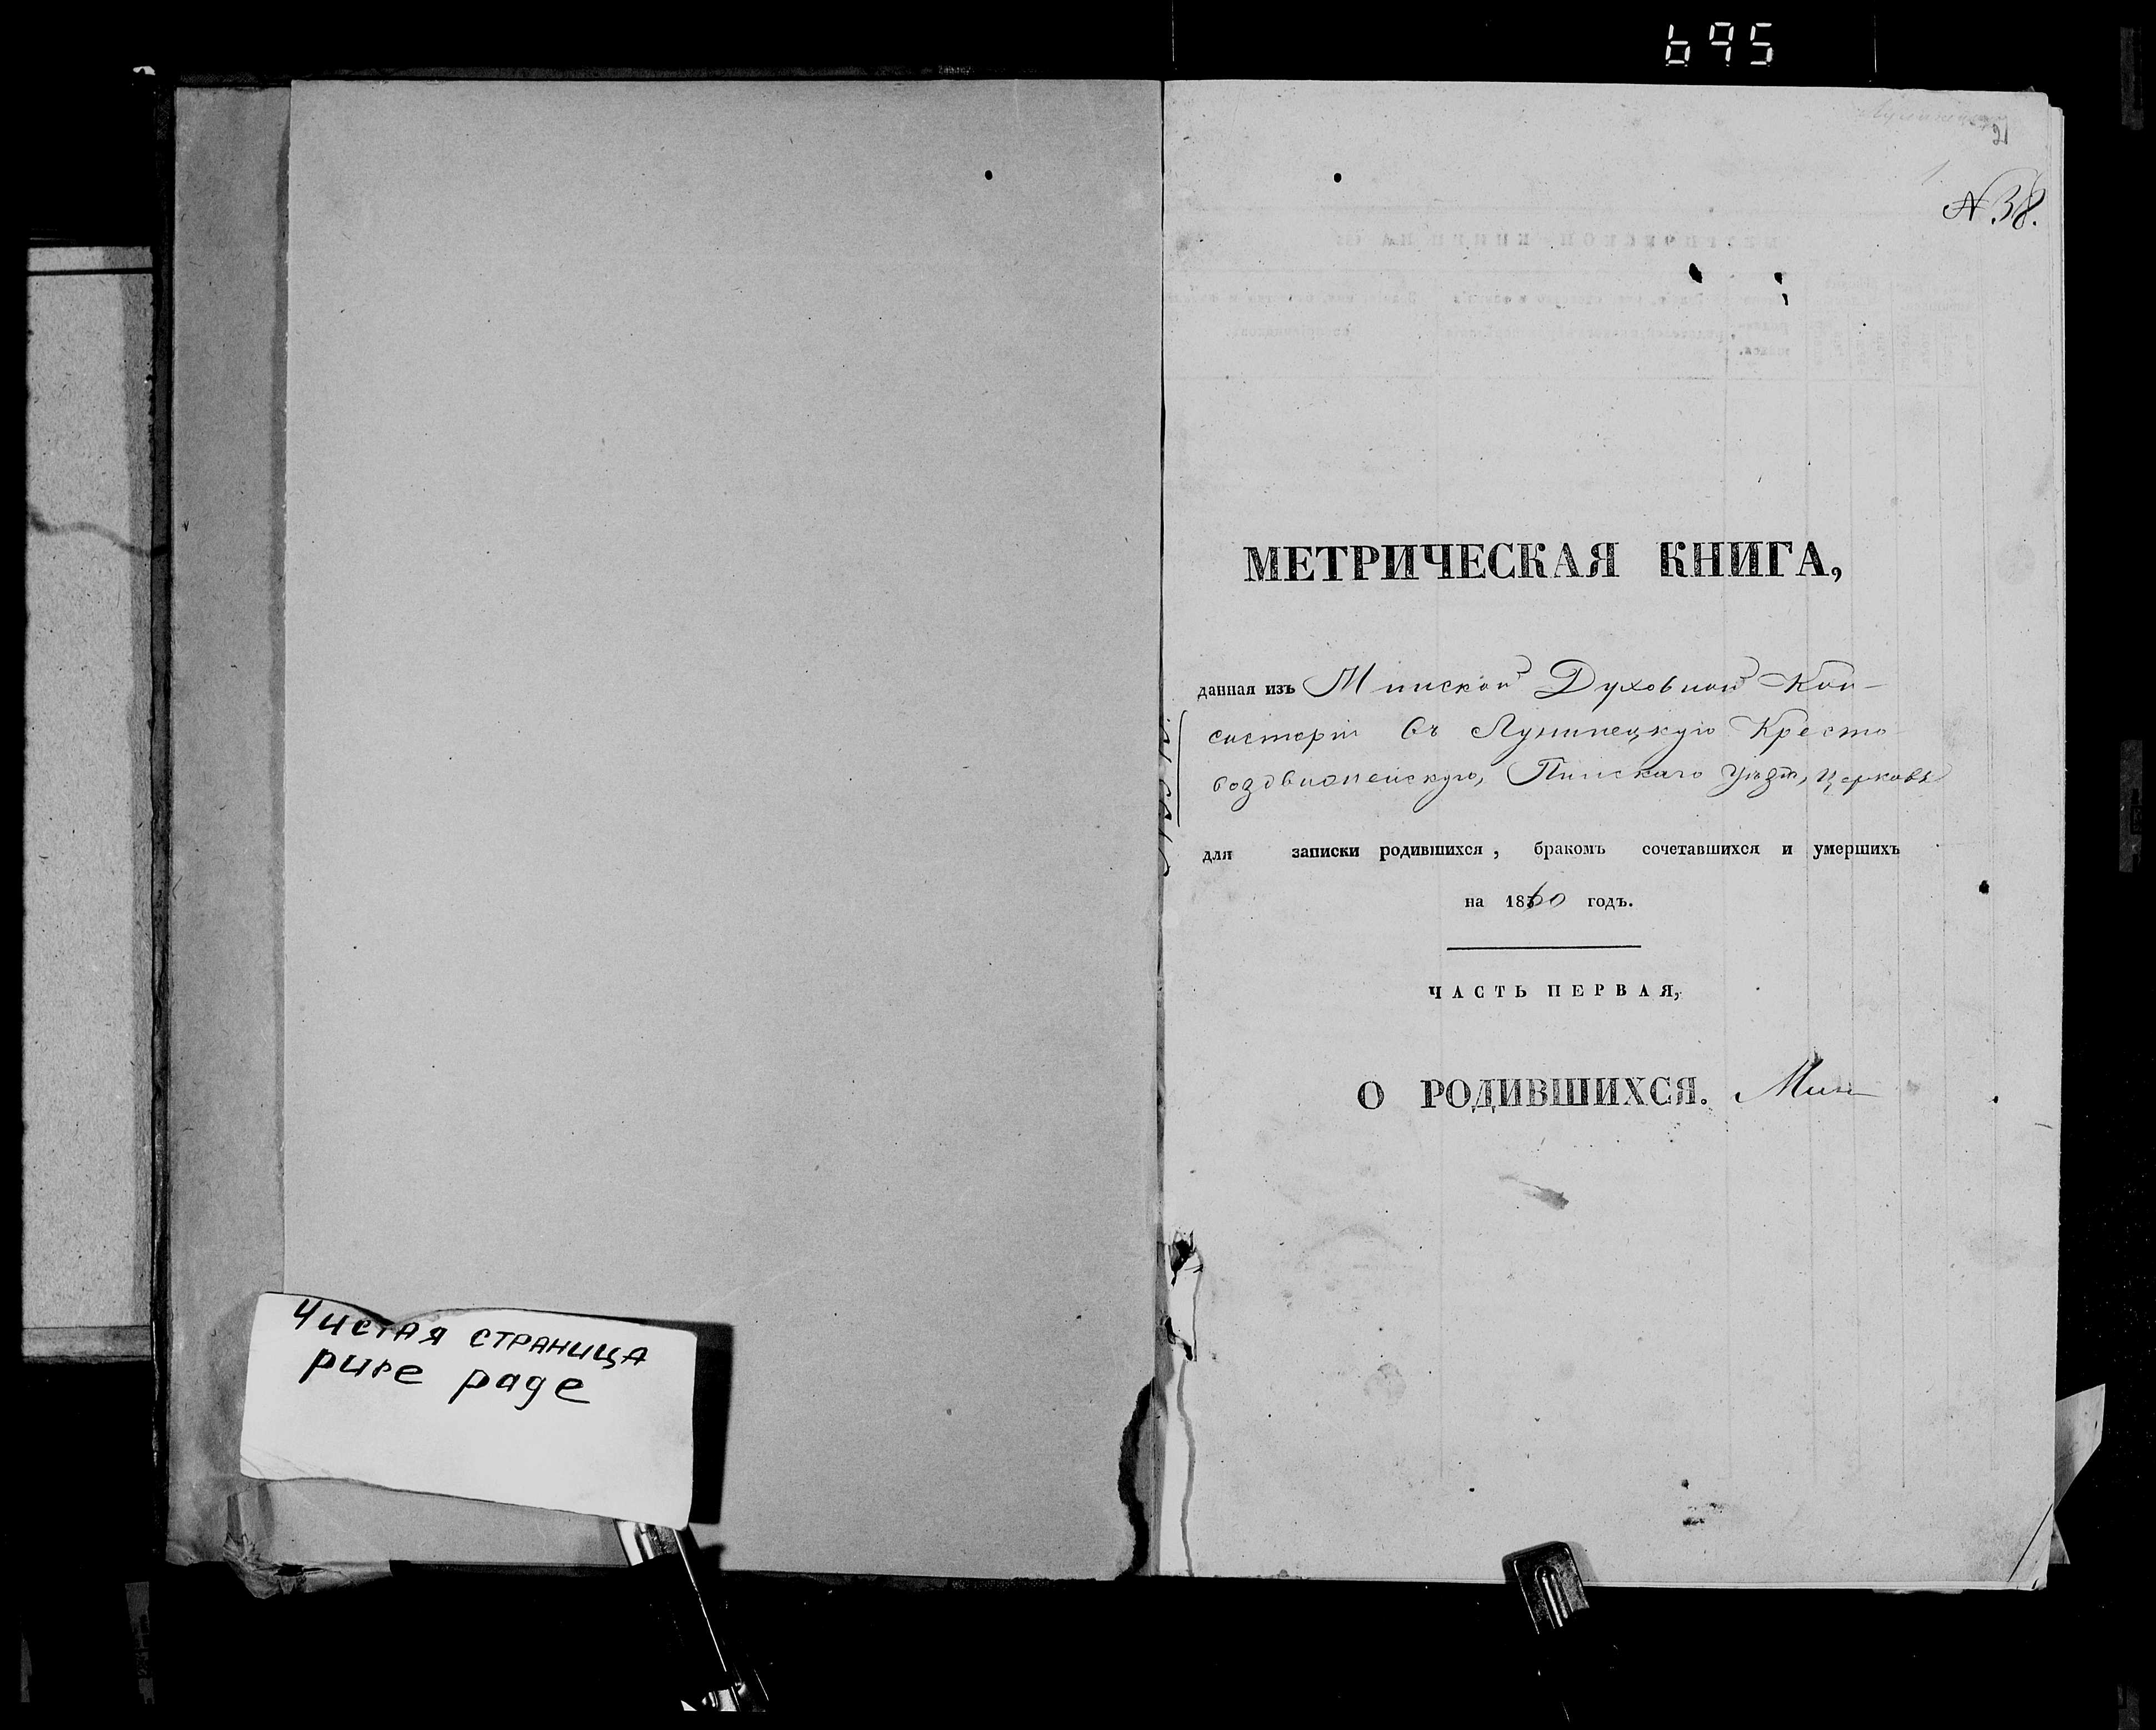 695
21
№ 38.
МЕТРИЧЕСКАЯ КНИГА,
данная изъ Минской Духовной Кон-
систеріи въ Лунинецкую Кресто
воздвиженскую, Пинскаго уѣзда, церковь
для записки родившихся, бракомъ сочетавшихся и умершихъ
на 1860 годъ.
ЧАСТЬ ПЕРВАЯ,
О РОДИВШИХСЯ. Мин
Чистая страница
pure page